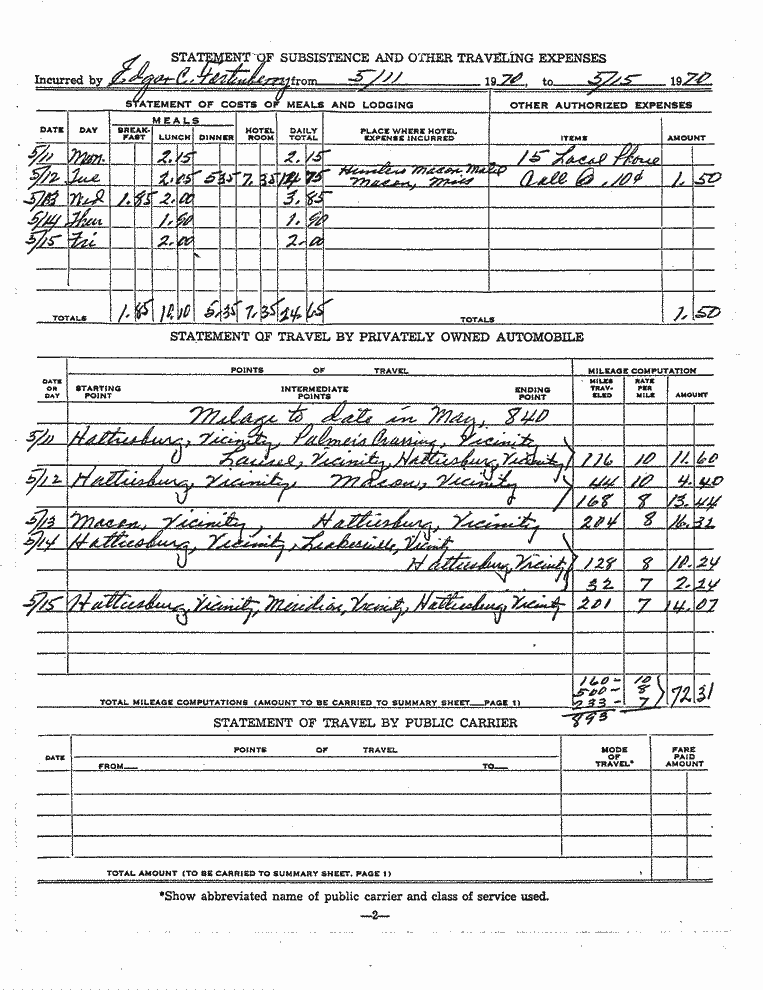 STATEMENT OF SUBSISTENCE AND OTHER TRAVELING EXPENSES
Incurred by Edgar C. Fortenberry from 5/11 1970, to 5/15 1970
STATEMENT OF COSTS OF MEALS AND LODGING OTHER AUTHORIZED EXPENSES
MEALS
DATE DAY BREAK-FAST LUNCH DINNER HOTEL ROOM DAILY TOTAL PLACE WHERE HOTEL EXPENSE INCURRED ITEMS AMOUNT
5/11 Mon. 2.15 2.15 15 Local Phone
5/12 Tue 2.05 5.35 7.35 14.75 Macon Motel Macon, Miss Call @ .10¢ 1.50
5/13 Wed 1.85 2.00 3.85
5/14 Thur 1.90 1.90
5/15 Fri 2.00 2.00
TOTALS 1.85 10.10 5.35 7.35 24.65 TOTALS 1.50
STATEMENT OF TRAVEL BY PRIVATELY OWNED AUTOMOBILE
POINTS OF TRAVEL MILEAGE COMPUTATION
DATE OR DAY STARTING POINT INTERMEDIATE POINTS ENDING POINT MILES TRAV-ELED RATE PER MILE AMOUNT
Milage to date in May, 840
5/11 Hattiesburg, Vicinity, Palmers Crossing, Vicinity
Laurel, Vicinity, Hattiesburg, Vicinity 116 10 11.60
5/12 Hattiesburg, Vicinity, Macon, Vicinity 44 10 4.40
168 8 13.44
5/13 Macon, Vicinity, Hattiesburg, Vicinity 204 8 16.32
5/14 Hattiesburg, Vicinity, Leakesville, Vicinity
Hattiesburg, Vicinity 128 8 10.24
32 7 2.24
5/15 Hattiesburg, Vicinity, Meridian, Vicinity, Hattiesburg, Vicinity 201 7 14.07
160- 10
500- 8
TOTAL MILEAGE COMPUTATIONS (AMOUNT TO BE CARRIED TO SUMMARY SHEET—PAGE 1) 233- 7 72.31
893
STATEMENT OF TRAVEL BY PUBLIC CARRIER
DATE POINTS OF TRAVEL MODE OF TRAVEL* FARE PAID AMOUNT
FROM— TO—
TOTAL AMOUNT (TO BE CARRIED TO SUMMARY SHEET, PAGE 1)
*Show abbreviated name of public carrier and class of service used.
—2—